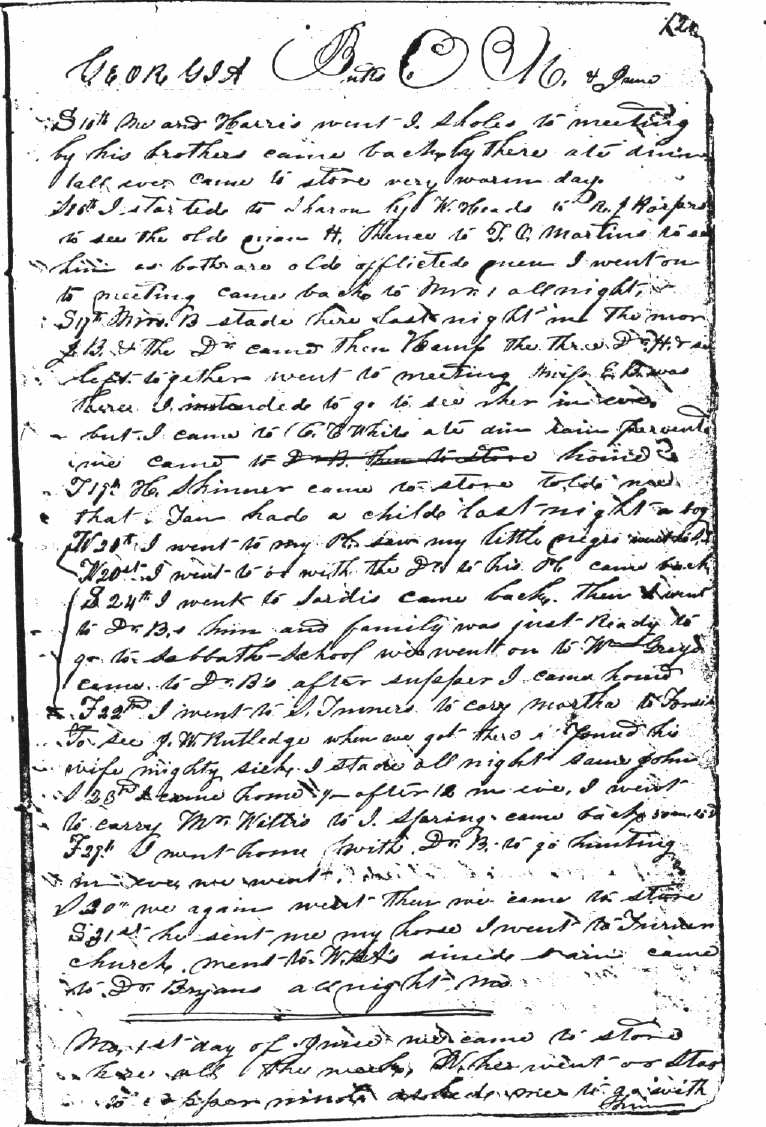 GEORGIA Banks C & June
S 10th Me and Harris went I. Sholes to meeting
by his brothers came back by there ate din
tall eve came to store very warm day
I started to Sharon by W. Heads to R. J Harpers
to see the old man H. thence to T. C. Martins to see
him as both are old afflicted men I went on
to meeting came back to all night,
S 17th Mrs. B stade here last night in the mor
J. B. & the Dr came then Kemp the three Dr. H. &
left together went to meeting Miss E. B. was
there I intended to go to see her in eve,
but I came to C. C White ate din rain prevents
me came to Dr B. then to store home
T 19th H. Skinner came to store told me
that Jan hade a childe last night a boy
W 20th I went to my Pl. saw my little negro
I went to with the Dr. to his Pl came back
S 24th I went to Sardis came back, then I went
to Dr. B,s him and family was just ready to
go to Sabbath-School we went on to Wm Grays
came to Dr. B's after supper I came home
F 22nd I went to S. Turners to cary Martha to
To see J. W Rutledge when we got there I found his
wife mighty sick, I stade all night same John
23rd I came home after 12 in eve, I went
to carry Mr. Willis to I. Spring came back
F 29th I went home with Dr. B. to go hunting
in eve, we went.
30th we again went then we came to store
S 31st he sent me my horse I went to Turner
church went to dined rain came
to Dr. Bryans all night
Mo, 1st day of June we came to store
here all the week, went
asked me to go with